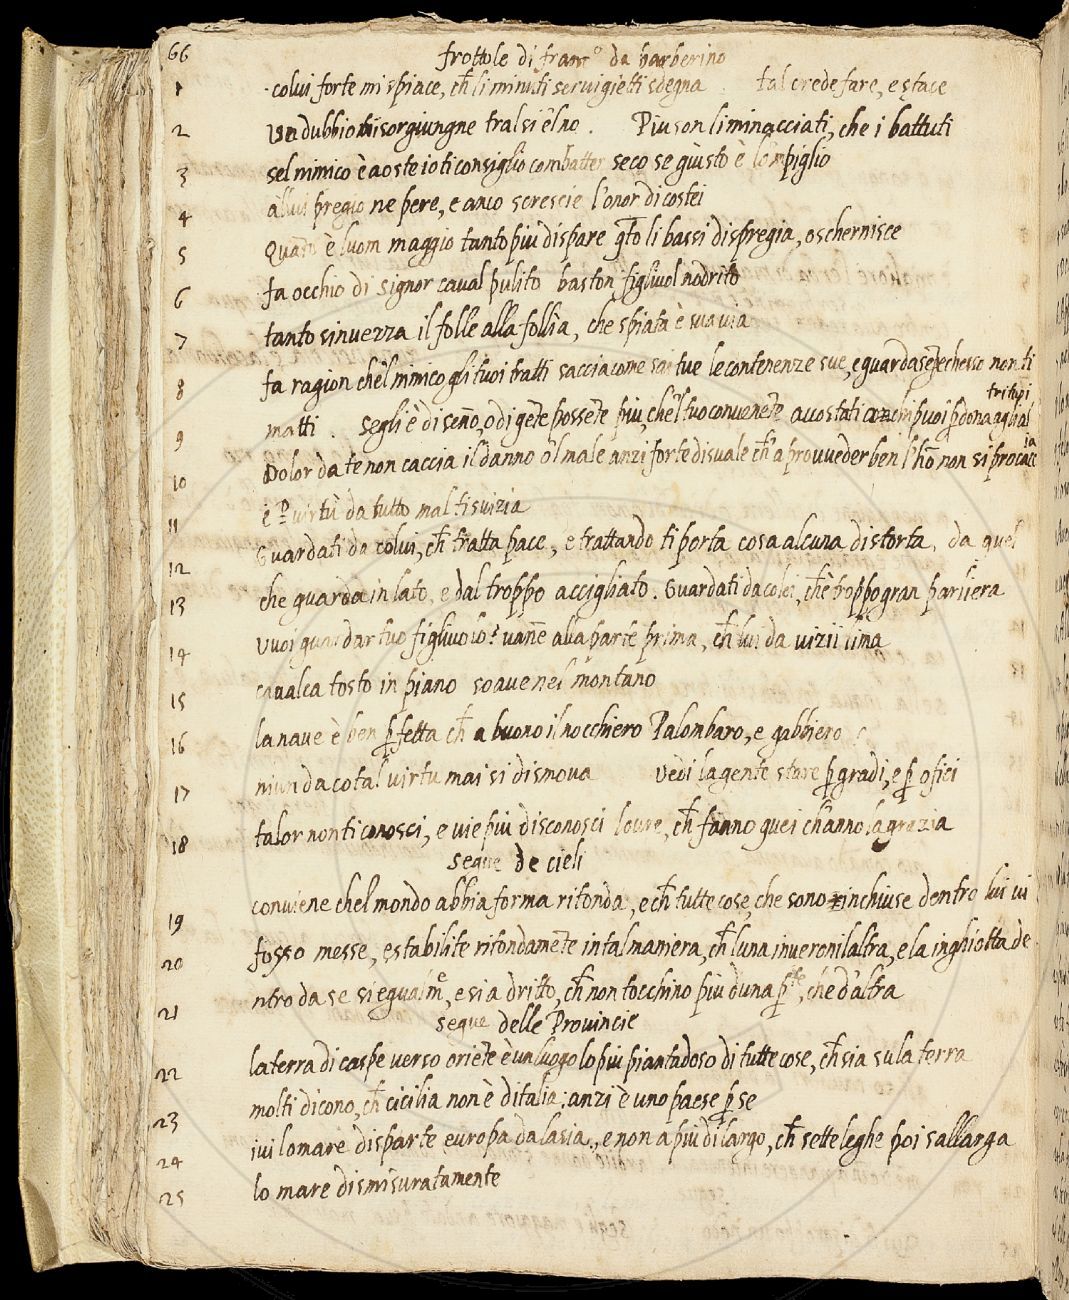 66
frottole di franc.º da barberino
1 colui forte mi spiace, ch̃ li minuti seruigietti sdegna. tal crede fare, e sface
2 Un dubbio mi sorgiungne tralsi e'lno. Piu son li minacciati, che i battuti
3 sel nimico è a oste io ti consiglio combatter seco se giusto è lo 'mpiglio
4 allui pregio ne pere, e anco screscie l'onor di costei
5 Quãto è luom maggio tanto piu dispare q̃to li bassi dispregia, o schernisce
6 fa occhio di signor caual pulito baston figliuol nodrito
7 tanto sinuezza il folle alla follia, che spiata è sua uia
8 fa ragion chel nimico gli tuoi tratti saccia come sai tue le contenenze sue, e guarda se
tritipi
9 matti. segli è di señno, o di gẽte possẽte piu, che'l tuo conuenẽte accostati puoi p̱dona
10 Dolor da te non caccia il danno ol male anzi forte disuale ch̃ a prouueder ben l'hõ non si procac
cia
11 e p̱ uirtù da tutto mal ti suizia
12 Guardati da colui, ch̃ tratta pace, e trattando ti porta cosa alcuna distorta, da quel
13 che guarda in lato, e dal troppo accigliato. Guardati da colei, ch'è troppo gran parliera
14 Vuoi guardar tuo figliuolo? uanẽ alla parte prima, ch̃ lui da uizii lima
15 caualca tosto in piano soaue nel montano
16 la naue è ben p̱fetta ch̃ a buono il nocchiero Palombaro, e gabbiero
17 niun da cotal uirtu mai si dismoua Vedi la gente stare p̱ gradi, e p̱ ofici
18 talor non ti conosci, e uie piu disconosci loure, ch̃ fanno quei ch'anno la grazia
segue de cieli
19 conuiene chel mondo abbia forma ritonda, e ch̃ tutte cose, che sono inchiuse dentro lui ui
20 fosso messe, e stabilite ritondamẽte in tal maniera, ch̃ luna inueroni laltra, e la inghiotta de
21 ntro da se si egualm̃e, e si a dritto, ch̃ non tocchino piu duna p̱te, che d'altra
segue delle Prouincie
22 la terra di caspe uerso oriẽte è un luogo lo piu piantadoso di tutte cose, ch̃ sia su la terra
23 molti dicono, ch̃ cicilia non è ditalia; anzi è uno paese p̱ se
24 iui lo mare disparte europa da lasia, e non a piu di largo, ch̃ sette leghe poi sallarga
25 lo mare dismisuratamente